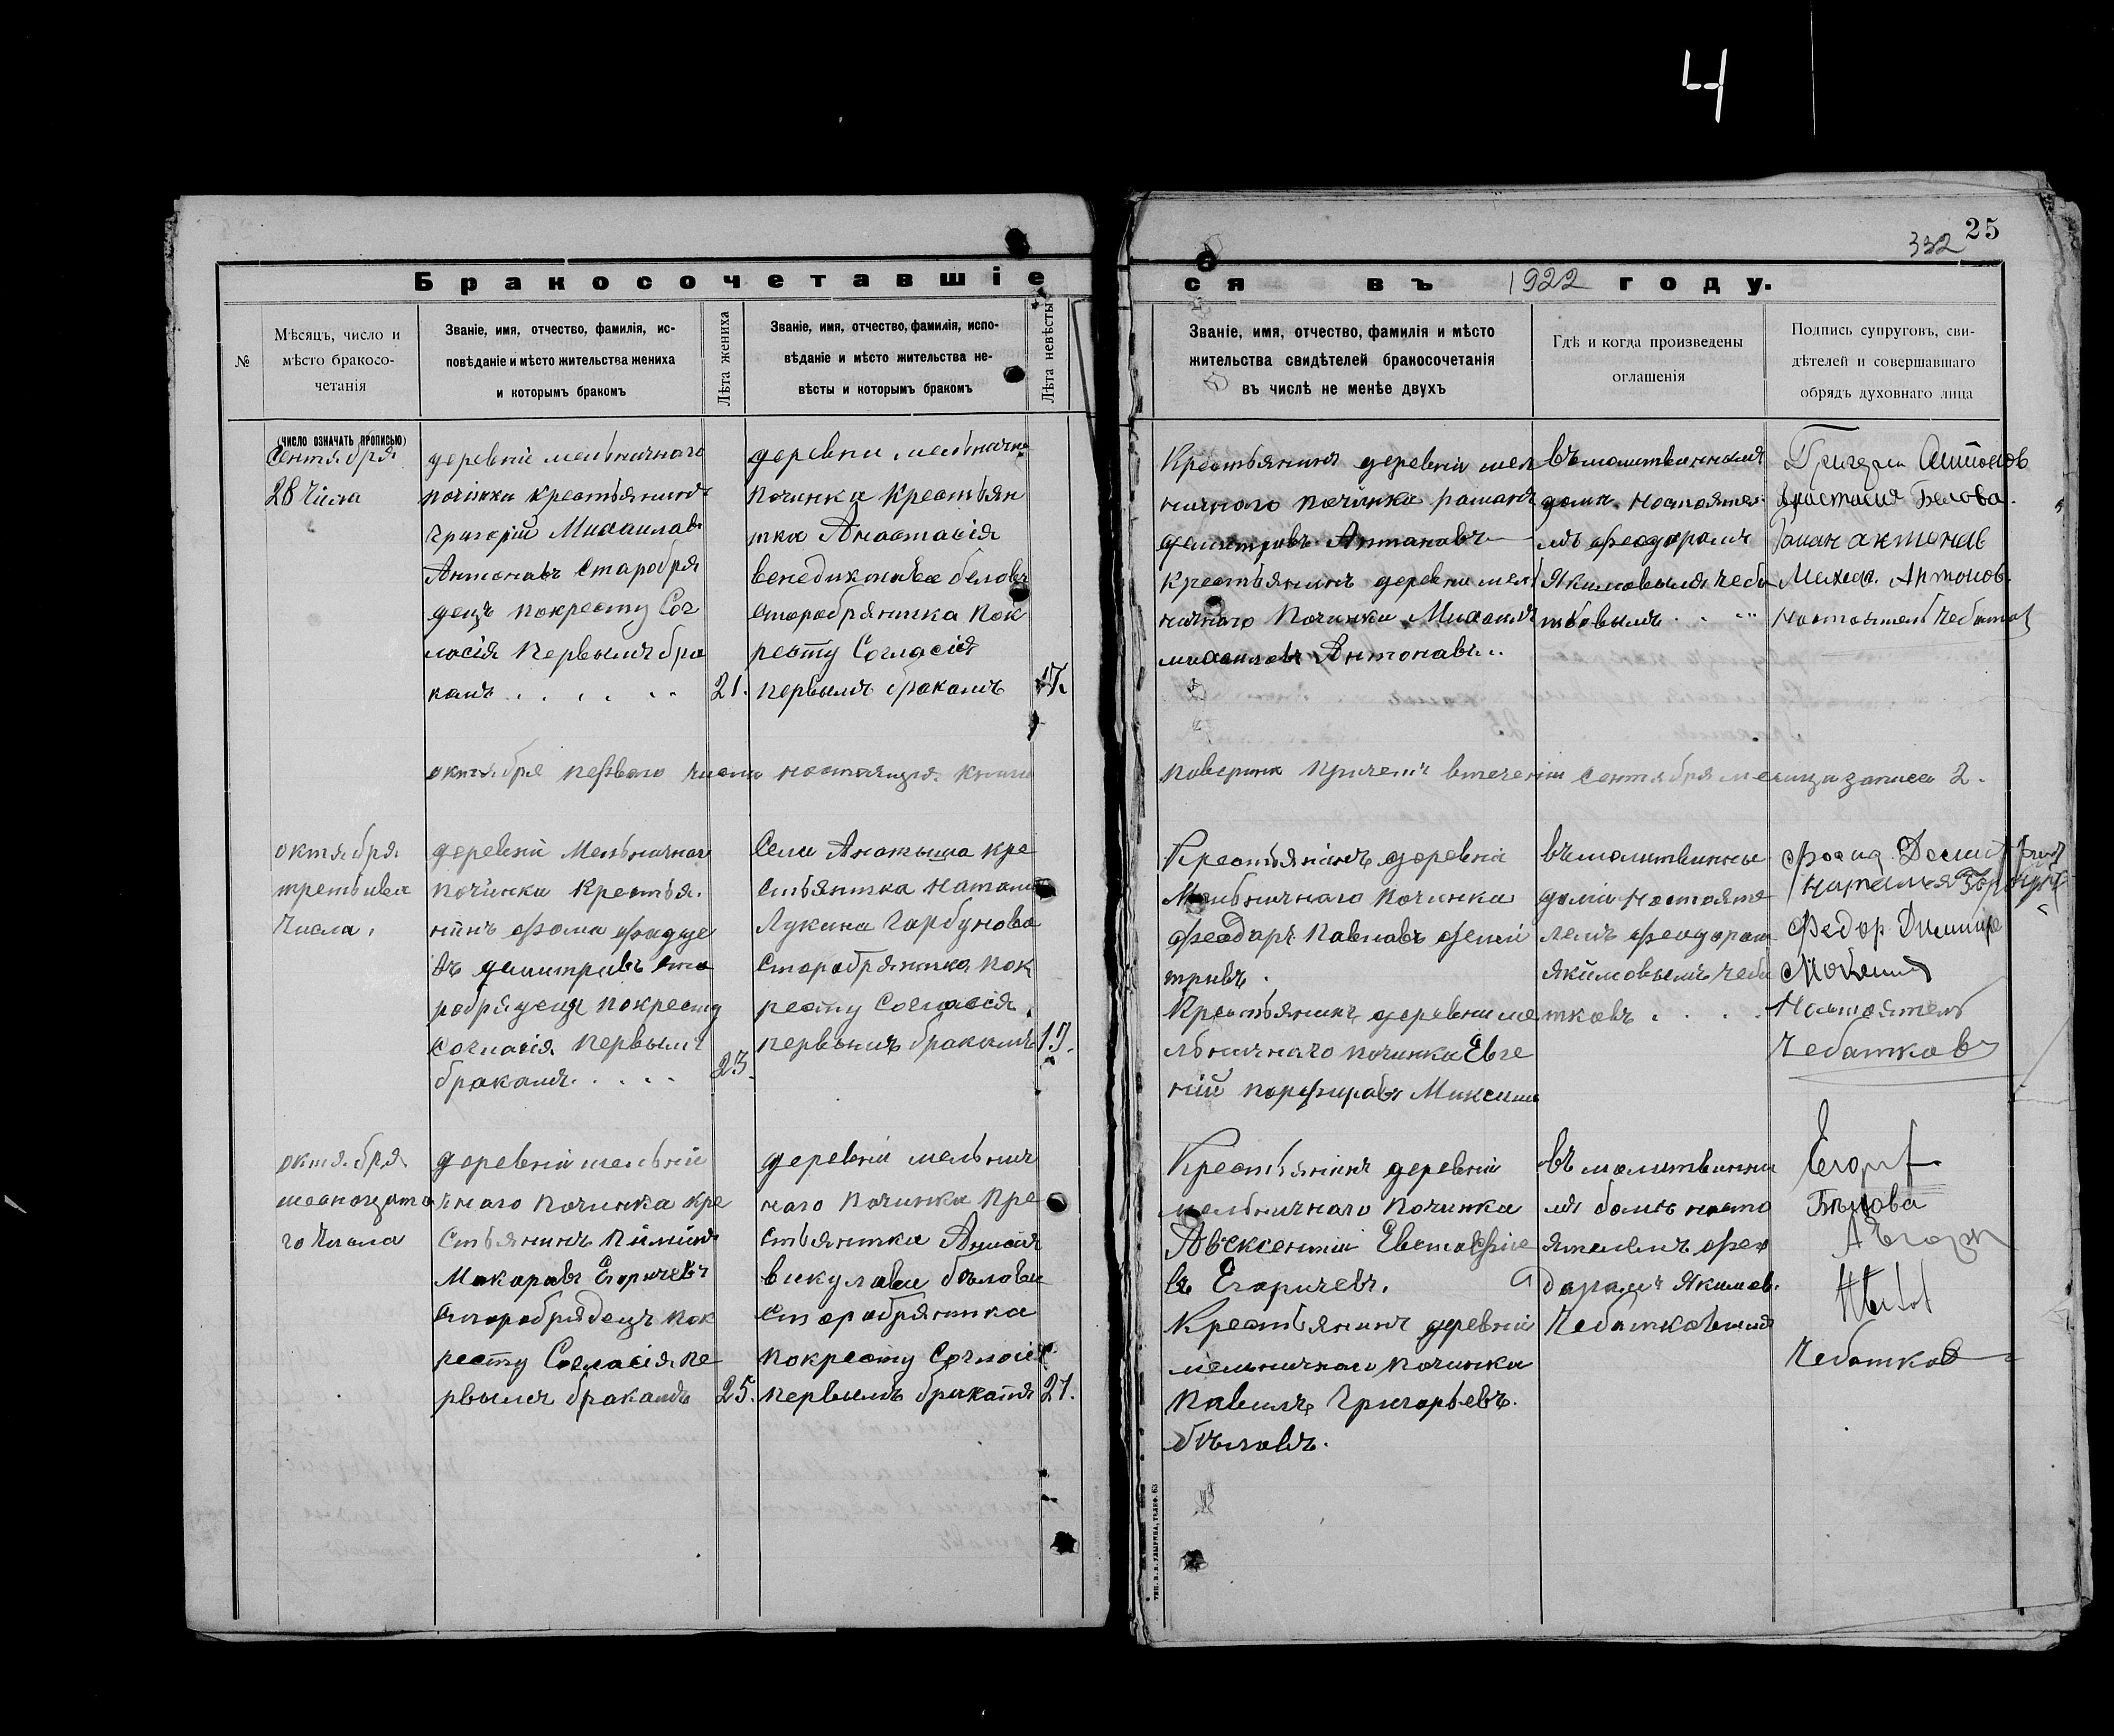 4
25
332
Бракосочетавшіе
ся въ 1922 году.
№
Мѣсяцъ, число и
мѣсто бракосо-
четанія
Званіе, имя, отчество, фамилія, ис-
повѣданіе и мѣсто жительства жениха
и которымъ бракомъ
Лѣта жениха
Званіе, имя, отчество, фамилія, испо-
вѣданіе и мѣсто жительства не-
вѣсты и которымъ бракомъ
Лѣта невѣсты
Званіе, имя, отчество, фамилія и мѣсто
жительства свидѣтелей бракосочетанія
въ числѣ не менѣе двухъ
Гдѣ и когда произведены
оглашенія
Подпись супруговъ, сви-
дѣтелей и совершавшаго
обрядъ духовнаго лица
(число означать прописью)
Сентября
28 Числа
деревніе мельничнаго
починка крестьянинъ
Григорій Михаилавъ
Антонавъ старобря
децъ покресту Сог
ласія первымъ бра
камъ . . . . . .
21.
деревни мельнично
починка крестьян
тка Анастасія
венедиктавва беловъ
старобрянтка пок
ресту Согласія
первымъ бракамъ
17.
Крестьянинъ деревніи мел
ничнаго починка раманъ
демитровъ Антанавъ
крестьянинъ деревни мел
ничнаго починка Михаилъ
михаиловъ Антонавъ..
въ молитвинныя
доми настояте
лъ феодорамъ
Якимовымъ чеба
тковымъ . . "
Григорий Антонов
Анастасия Белова.
Раман антонав
Михаи. Антонов
Настоятель Чебатков
октября первого числа настаящая книги
поверина причемъ втечении сентября месица записа 2.
октября
третьива
числа.
деревніи Мельничнаг
починка крестья.
нинъ фома фадде
въ димитривъ ста
робрядецъ покресту
согласія первымъ
бракамъ. . . . .
23.
Села Анатыша кре
стьянтка Наталия
Лукина Гарбунова
старобрянтка пок
ресту согласія.
первымъ бракамъ
17.
Крестьянинъ деревни
Мельничнаго починка
Феодаръ Павлавъ деми
тривъ.
Крестьянинъ деревни ме
льничнаго починка Евге
ний порфиравъ Максим
въ молитвинны
доми настояте
лемъ феодорам
якимовымъ чеба
тковъ . . . .
Наталия
Федор Димитре
Настоятель
Чебатков
октября
шеснацата
го числа
деревніи мельни
чнаго починка кре
стьянинъ Пиминъ
Макаравъ Егоричевъ
старобрядецъ пок
ресту Согласія пе
рвымъ бракамъ
25.
деревніи мельнич
наго починка кре
стьянтка Анисия
викулавы бѣловы
старобрянтка
покресту Согласіе
первымъ бракамъ
21.
Крестьянинъ деревніи
мельничнаго починка
Авексентий Евстафие
въ Егоричевъ.
Крестьянинъ деревніи
мельничнаго починка
Павилъ Григорьевъ.
бѣлавъ.
въ молитвинни
мъ домъ насто
ятелемъ фео
дорамъ Якимов.
Чебатковымъ
Бѣлова
Чебатков